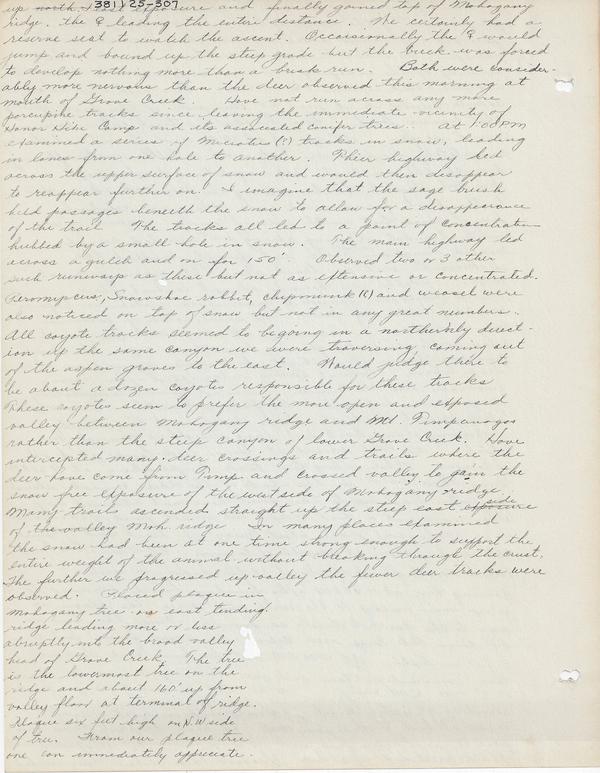 up north 381125-307 exposure and finally gained top of Mahogany
ridge, the ♀ leading the entire distance. We certainly had a
reserve seat to watch the ascent. Occaisionally the ♀ would
jump and bound up the steep grade but the buck was forced
to develop nothing more than a break run. Both were consider-
ably more nervous than the deer observed this morning at
mouth of Grove Creek. Have not run across any more
porcupine tracks since leaving the immediate vicinity of
Honor Site Camp and its associated conifer trees. At 1:00 PM
examined a series of Microtus (?) tracks in snow, leading
in lanes from one hole to another. Their highway led
across the upper surface of snow and would then disappear
to reappear further on. I imagine that the sage brush
held passages beneath the snow to allow for a disappearance
of the trail. The tracks all led to a point of concentration
hubbed by a small hole in snow. The main highway led
across a gulch and on for 150'. Observed two or 3 other
such runways as these but not as extensive or concentrated.
Peromyscus, Snowshoe rabbit, chipmunk (?) and weasel were
also noticed on top of snow but not in any great numbers.
All coyote tracks seemed to be going in a northernly direct-
ion up the same canyon we were traversing coming out
of the aspen groves to the east. Would judge there to
be about a dozen coyotes responsible for these tracks
These coyotes seem to prefer the more open and exposed
valley between Mahogany ridge and Mt. Timpanogos
rather than the steep canyon of lower Grove Creek. Have
intercepted many deer crossings and trails where the
deer have come from Timp and crossed valley to gain the
snow free exposure of the west side of Mahogany ridge.
Many trails ascended straight up the steep east exposure side
of the valley Moh. ridge In many places examined
the snow had been at one time strong enough to support the
entire weight of the animal without breaking through the crust.
The further we progressed up valley the fewer deer tracks were
observed. Placed plaque in
mahogany tree on east tending
ridge leading more or less
abruptly into the broad valley
head of Grove Creek. The tree
is the lowermost tree on the
ridge and about 160' up from
valley floor at terminal of ridge.
Plaque six feet high on N.W side
of tree. From our plaque tree
one can immediately appreciate